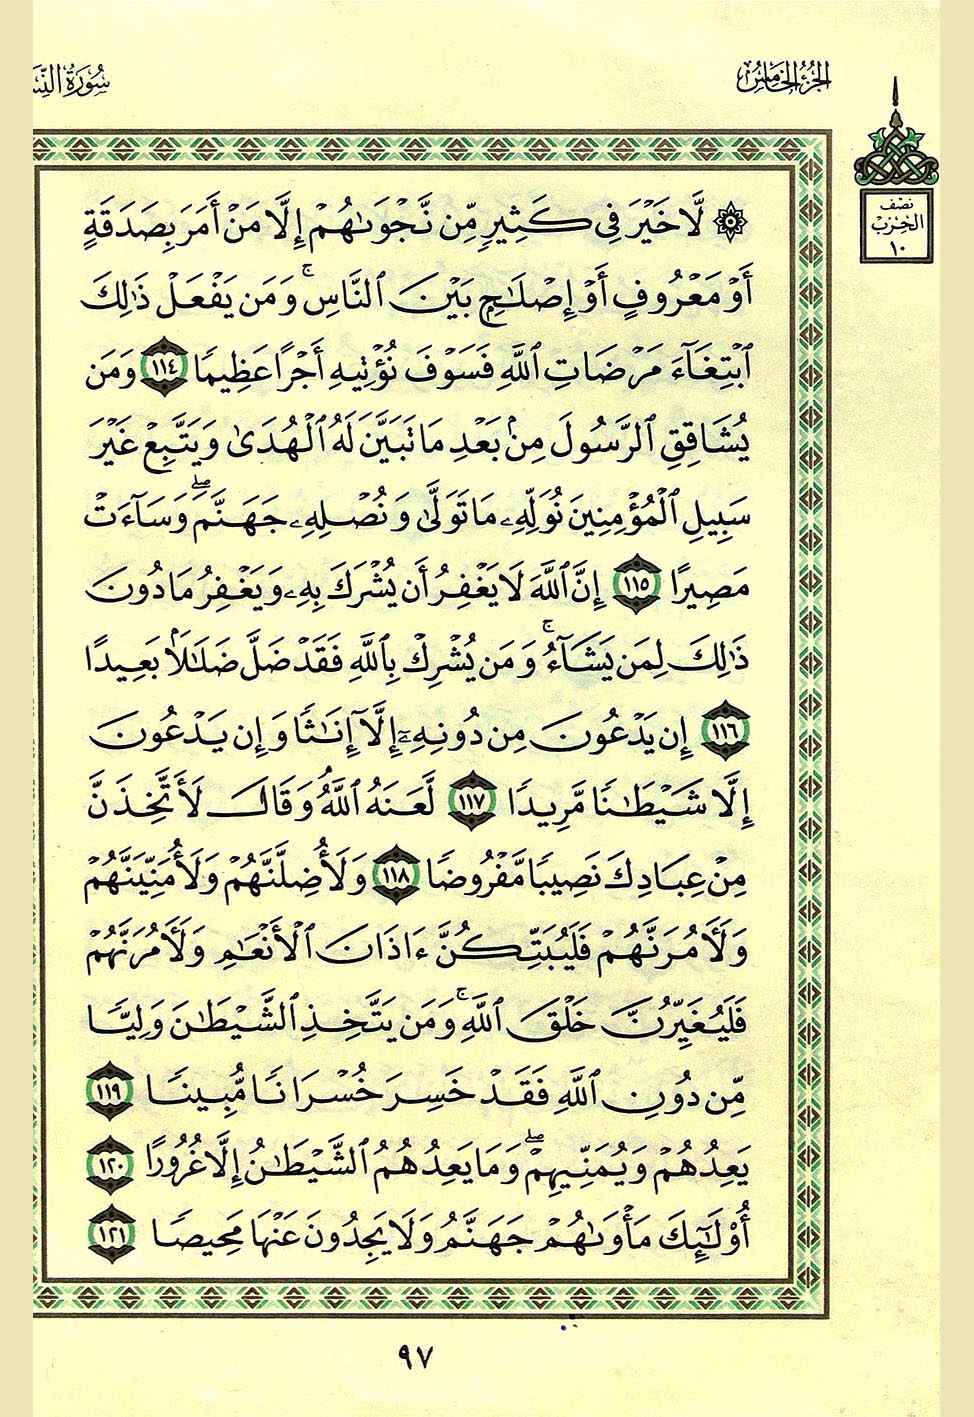 الجزء الخامس
سورة
نصف
الحزب
١٠
۞ لَّا خَيْرَ فِى كَثِيرٍ مِّن نَّجْوَىٰهُمْ إِلَّا مَنْ أَمَرَ بِصَدَقَةٍ
أَوْ مَعْرُوفٍ أَوْ إِصْلَٰحٍۭ بَيْنَ ٱلنَّاسِۚ وَمَن يَفْعَلْ ذَٰلِكَ
ٱبْتِغَآءَ مَرْضَاتِ ٱللَّهِ فَسَوْفَ نُؤْتِيهِ أَجْرًا عَظِيمًا ١١٤ وَمَن
يُشَاقِقِ ٱلرَّسُولَ مِنۢ بَعْدِ مَا تَبَيَّنَ لَهُ ٱلْهُدَىٰ وَيَتَّبِعْ غَيْرَ
سَبِيلِ ٱلْمُؤْمِنِينَ نُوَلِّهِۦ مَا تَوَلَّىٰ وَنُصْلِهِۦ جَهَنَّمَۖ وَسَآءَتْ
مَصِيرًا ١١٥ إِنَّ ٱللَّهَ لَا يَغْفِرُ أَن يُشْرَكَ بِهِۦ وَيَغْفِرُ مَا دُونَ
ذَٰلِكَ لِمَن يَشَآءُۚ وَمَن يُشْرِكْ بِٱللَّهِ فَقَدْ ضَلَّ ضَلَٰلًۢا بَعِيدًا
١١٦ إِن يَدْعُونَ مِن دُونِهِۦٓ إِلَّآ إِنَٰثًا وَإِن يَدْعُونَ
إِلَّا شَيْطَٰنًا مَّرِيدًا ١١٧ لَّعَنَهُ ٱللَّهُۘ وَقَالَ لَأَتَّخِذَنَّ
مِنْ عِبَادِكَ نَصِيبًا مَّفْرُوضًا ١١٨ وَلَأُضِلَّنَّهُمْ وَلَأُمَنِّيَنَّهُمْ
وَلَءَامُرَنَّهُمْ فَلَيُبَتِّكُنَّ ءَاذَانَ ٱلْأَنْعَٰمِ وَلَءَامُرَنَّهُمْ
فَلَيُغَيِّرُنَّ خَلْقَ ٱللَّهِۚ وَمَن يَتَّخِذِ ٱلشَّيْطَٰنَ وَلِيًّا
مِّن دُونِ ٱللَّهِ فَقَدْ خَسِرَ خُسْرَانًا مُّبِينًا ١١٩
يَعِدُهُمْ وَيُمَنِّيهِمْۖ وَمَا يَعِدُهُمُ ٱلشَّيْطَٰنُ إِلَّا غُرُورًا ١٢٠
أُو۟لَٰٓئِكَ مَأْوَىٰهُمْ جَهَنَّمُ وَلَا يَجِدُونَ عَنْهَا مَحِيصًا ١٢١
٩٧